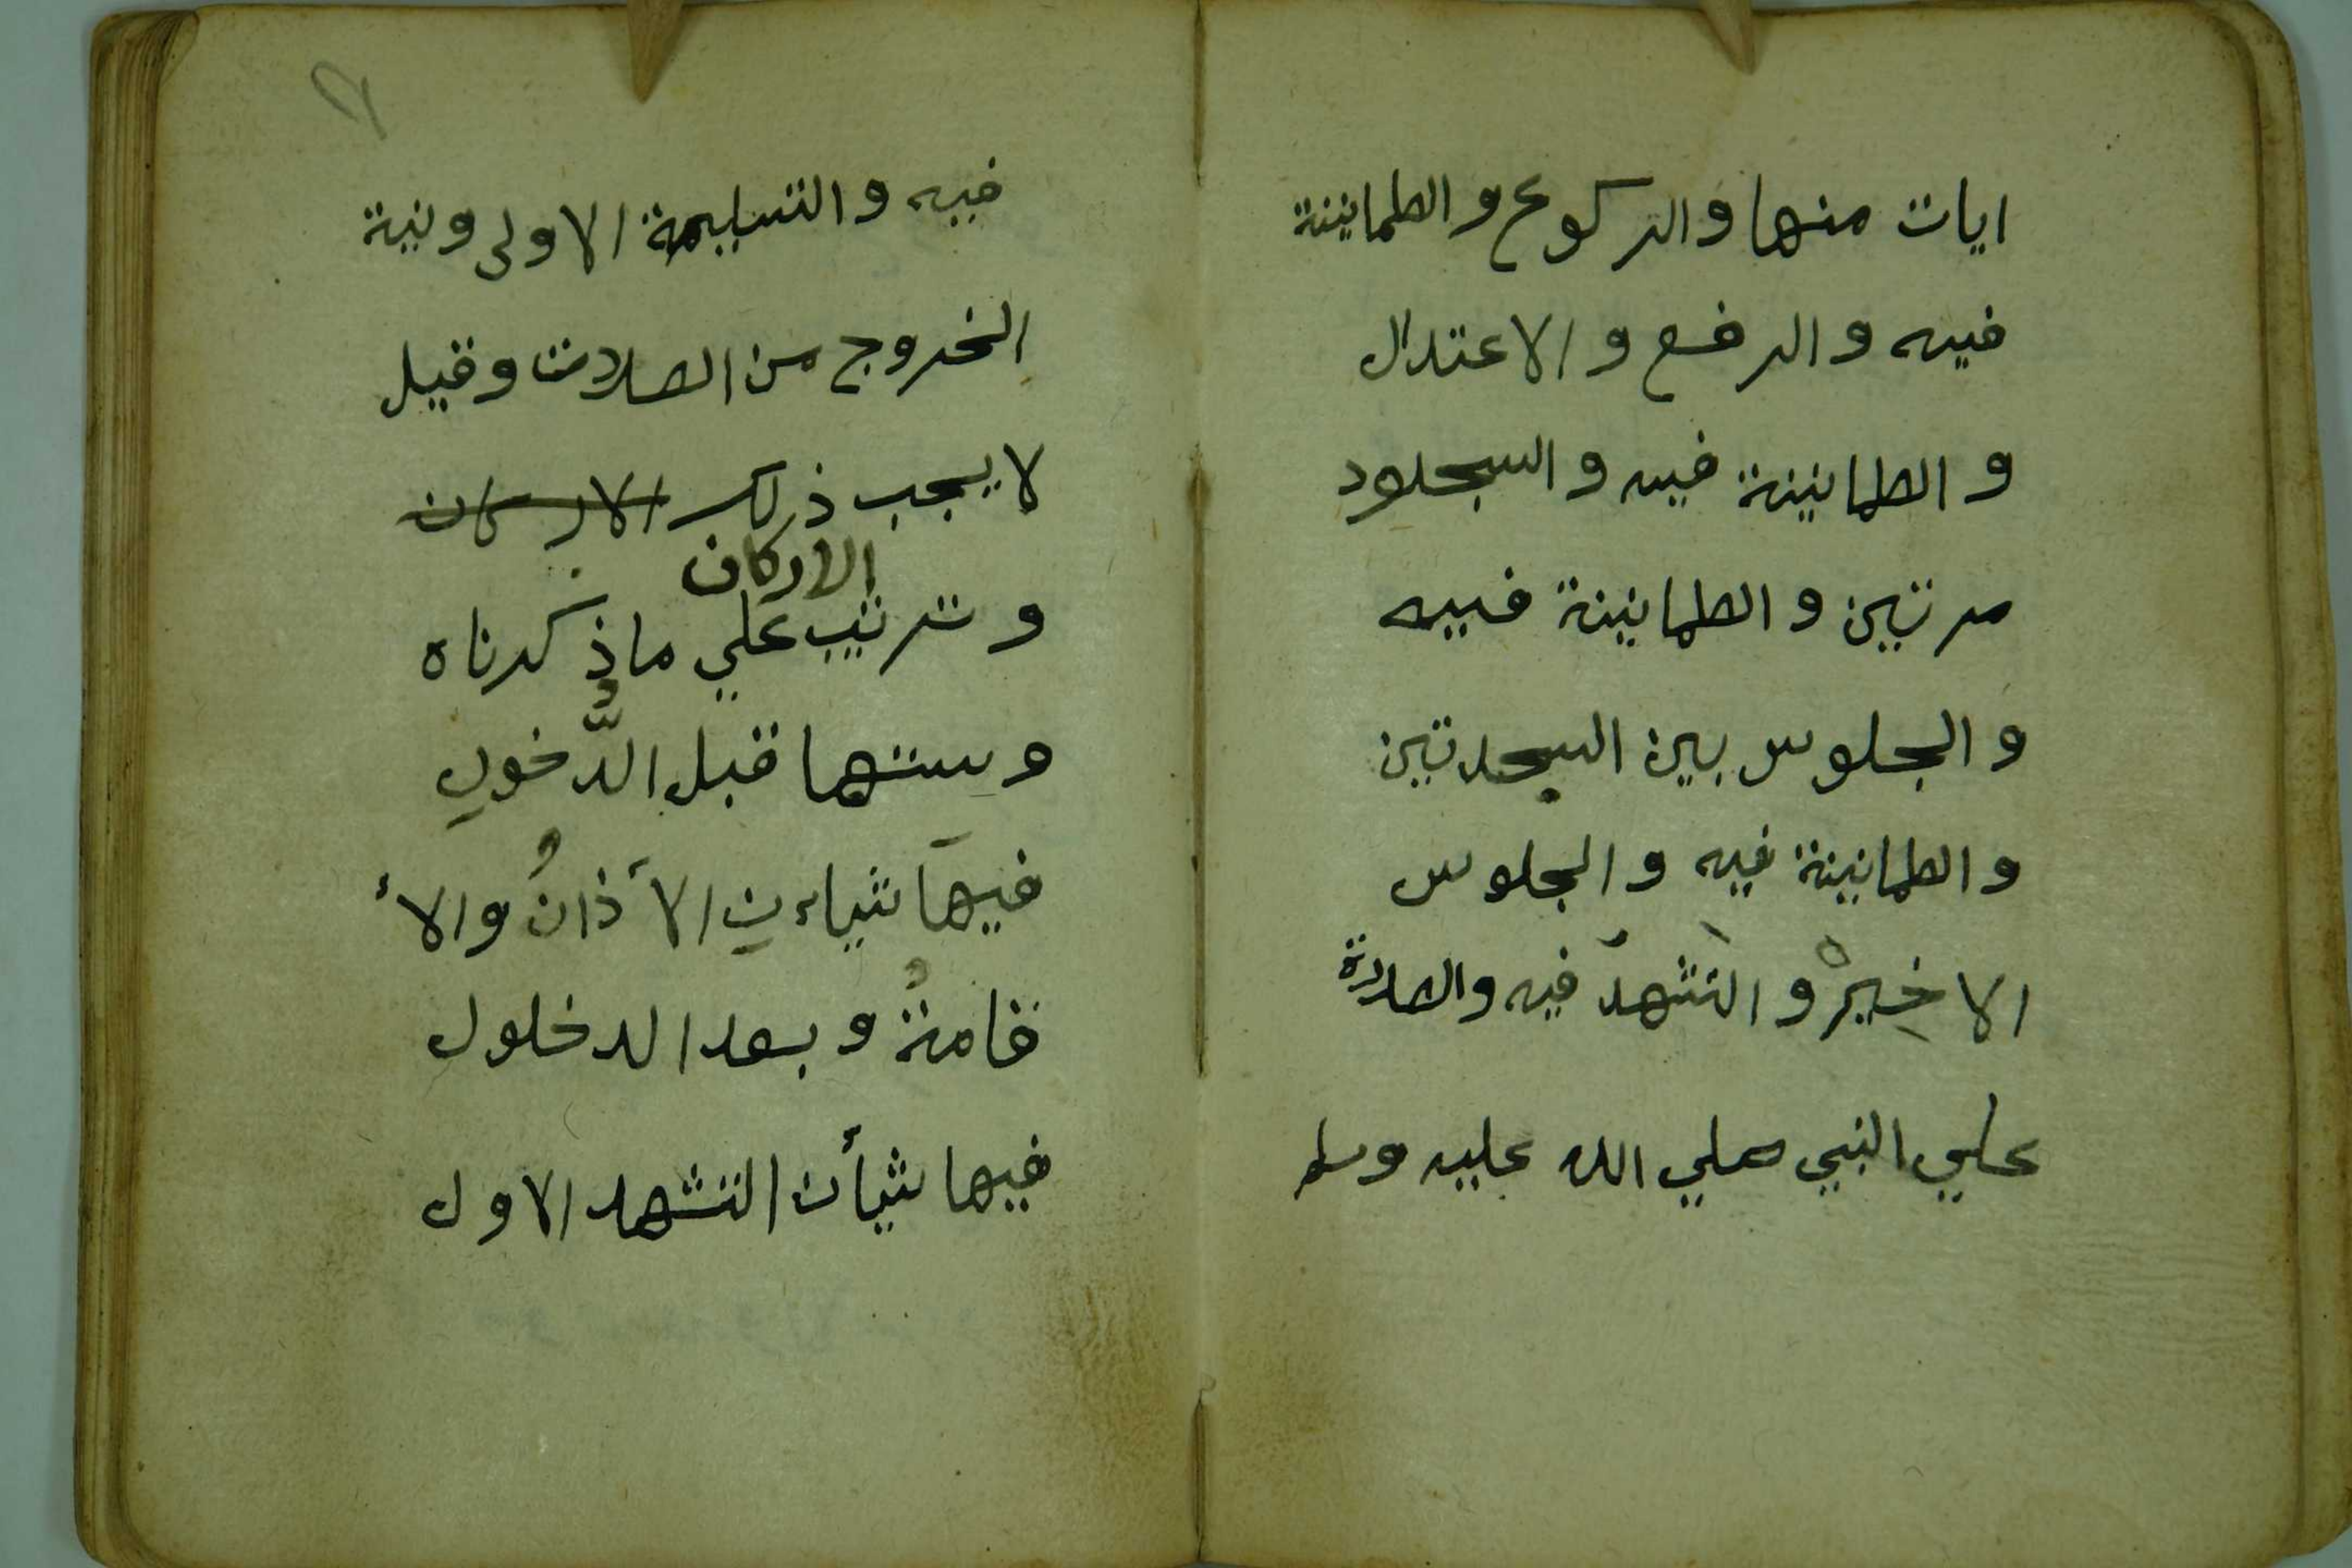 ايات منها والركوع والطمانينة
فيه والرفع والاعتدال
والطمانينة فيه والسجلود
مرتين والطمانينة فييه
والجلوس بين السجدتين
والطمانينة فيه والجلوس
الاخيرْ والتشهدَ فيه والصلاة
علي النبي صلي الله عليه وسلم
فيه والتسليمة الاولى ونية
الخروج من الصلات وقيل
لا يجب ذلك الاركان
الاركان
وترتيب علي ما ذكرناه
وسننها قبل الدُّخولِ
فيهَا شياءنِ الآَذانُ والأ
قامةُ وبعد الدخلول
فيها شيأن التشهد الاول